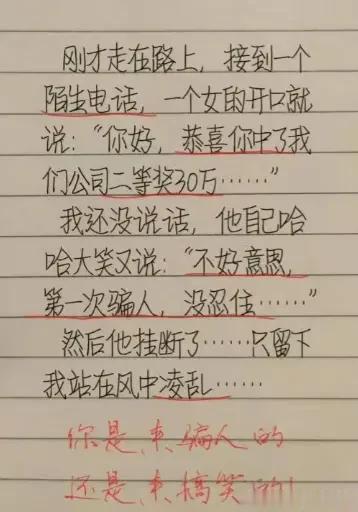 刚才走在路上，接到一个
陌生电话，一个女的开口就
说：“你好，恭喜你中了我
们公司二等奖30万……”
我还没说话，他自己哈
哈大笑又说：“不好意思，
第一次骗人，没忍住……”
然后他挂断了……只留下
我站在风中凌乱……
你是来骗人的
还是来搞笑的！